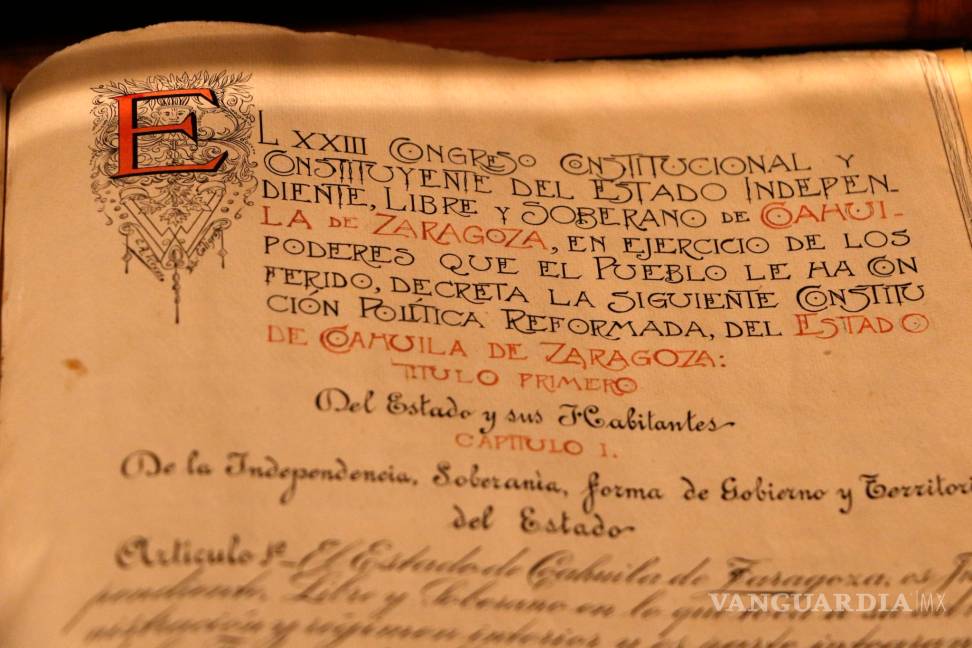 EL XXIII CONGRESO CONSTITUCIONAL Y
CONSTITUYENTE DEL ESTADO INDEPEN-
DIENTE, LIBRE Y SOBERANO DE COAHUI-
LA DE ZARAGOZA, EN EJERCICIO DE LOS
PODERES QUE EL PUEBLO LE HA CON
FERIDO, DECRETA LA SIGUIENTE CONSTITU
CIÓN POLÍTICA REFORMADA, DEL ESTADO
DE COAHUILA DE ZARAGOZA:
TITULO PRIMERO
Del Estado y sus Habitantes
CAPITULO I.
De la Independencia, Soberanìa, forma de Gobierno y Territori
del Estado
Artículo 1º_ El Estado de Coahuila de Zaragoza, es
pendiente, Libre y Soberano en lo que
y régimen interior y es parte
VANGUARDIA|MX